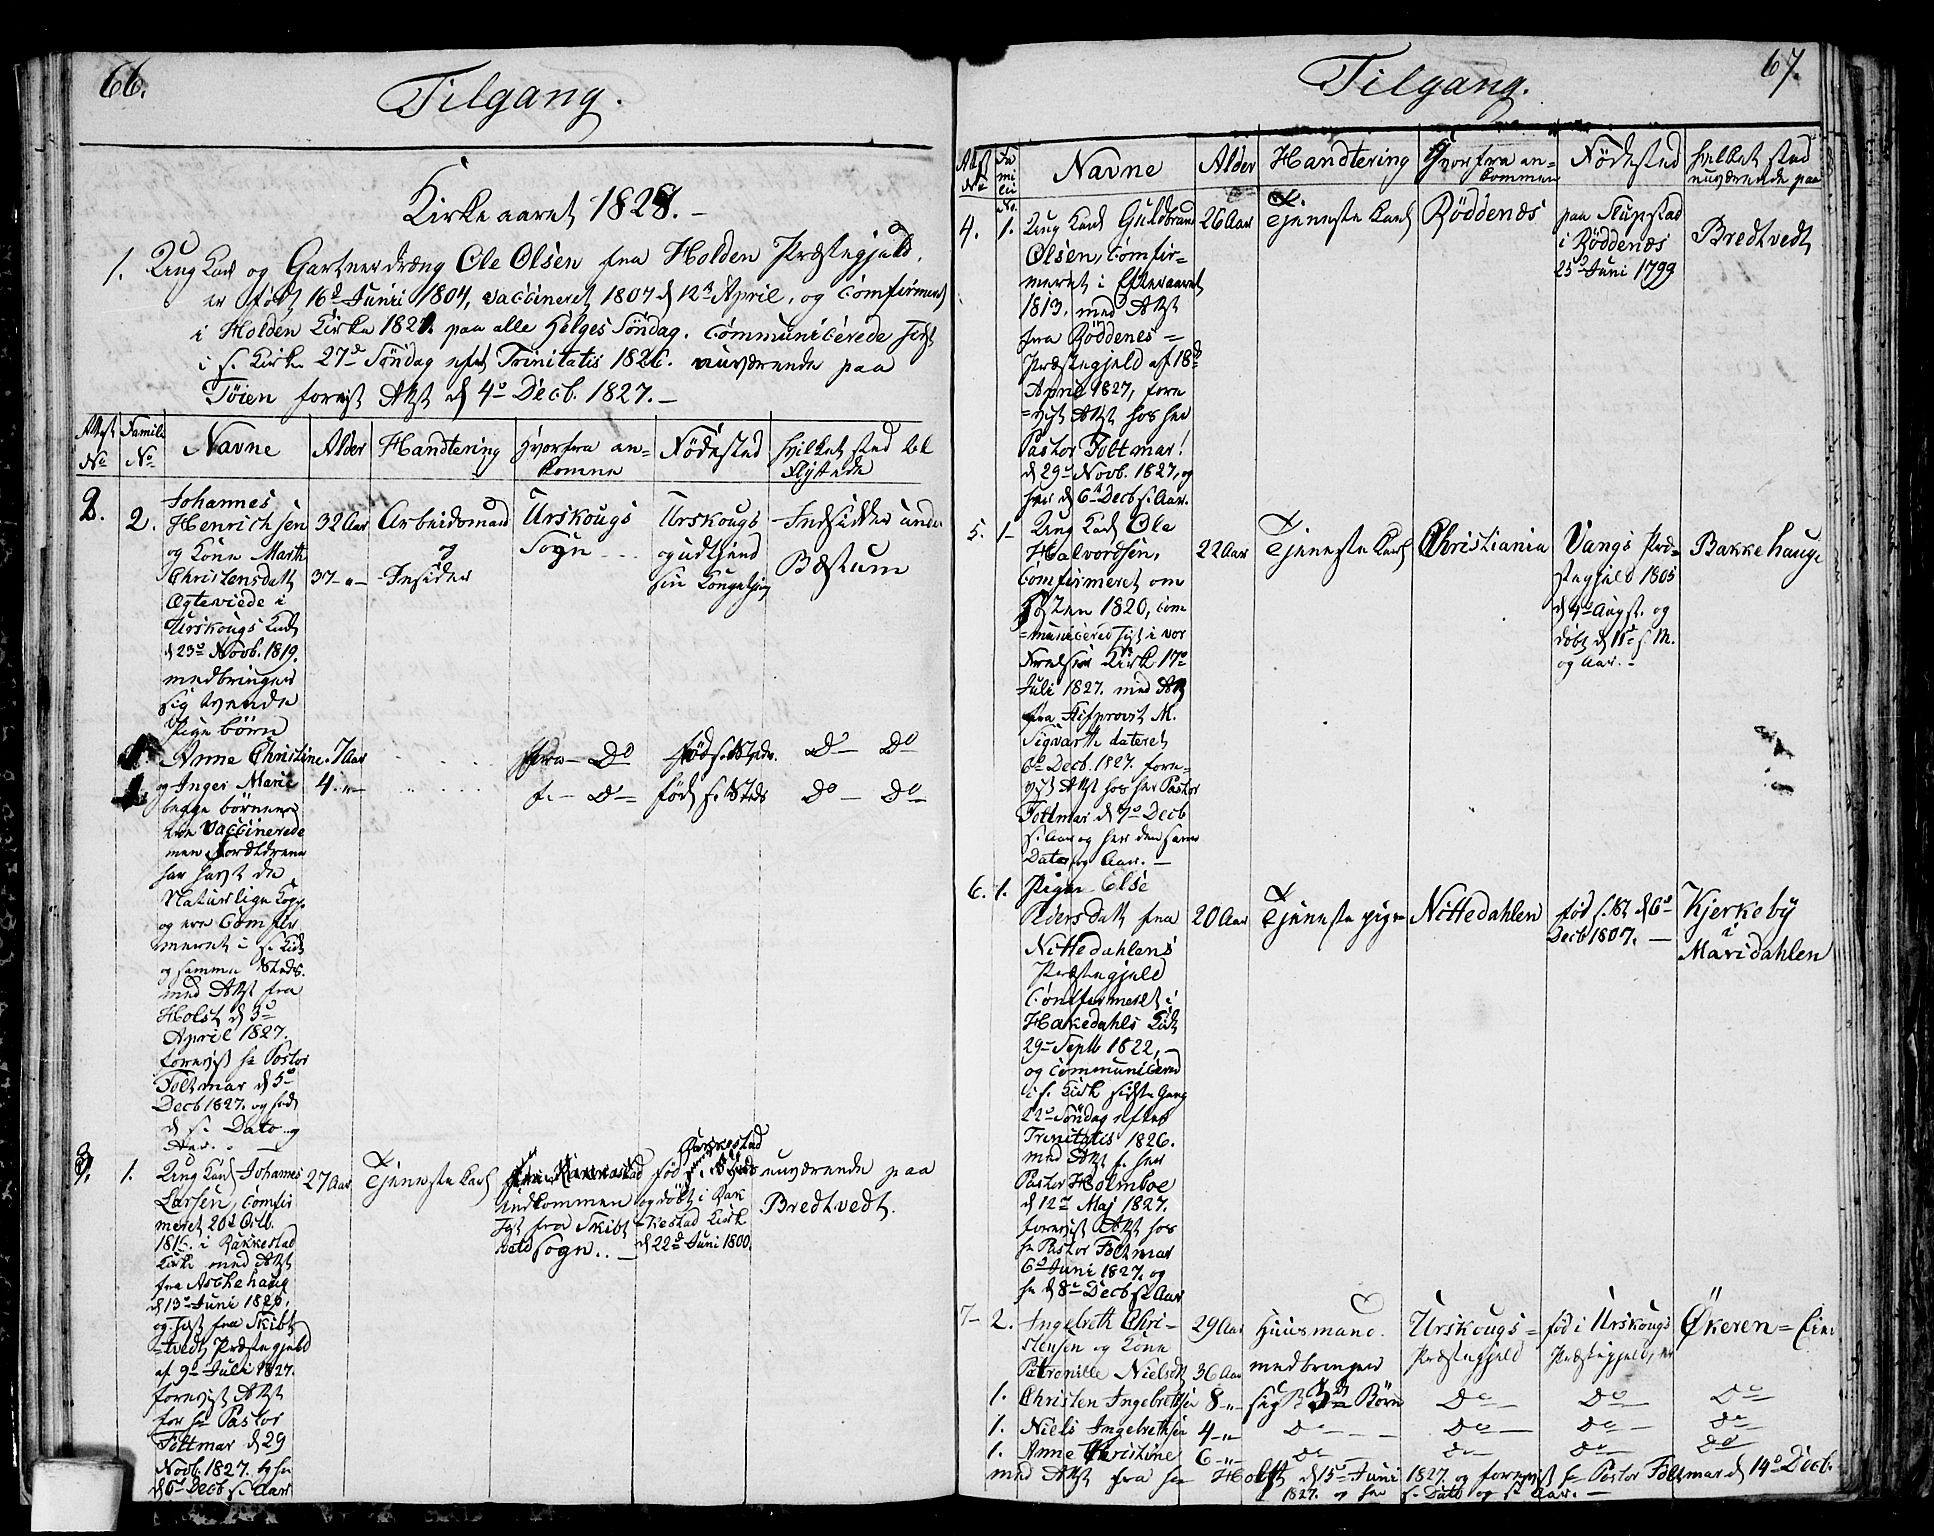 66.
Tilgang.
Kirkeaaret 1828. –
1. Ung Karl og Gartnerdræng Ole Olsen fra Holden Præstegjeld.
er født 16d Junii 1804, vaccineret 1807 d 12te April, og Comfirmeret
i Holden Kirke 1821. paa alle Helges Söndag. Communicerede sist
i s. Kirke 27d Söndag efter Trinitatis 1826. nuværende paa
Töien forvist Attst d 4de Decb. 1827. –
Attst No
Famili No
Navne
Alder
Handtering
Hvorfra ankomne
Födested
Hvilket sted til flyttede
2.
2.
Johannes
Henrichsen
og Kone Marth
Christensdatt
Ægteviede i
Urskougs Kirk
d 23de Novb. 1819.
medbringer
sig tvende
Pigebörn
32 Aar
37 - " -
Arbeidsmand
og
Insider
Urskougs
Sogn
Urskougs
Indsidder under
Bæstum
Anne Christine
7 Aar
fra - Do
Do - Do
og Inger Marie
4 - " -
f. - Do
föd s. Steds
Do - Do
begge börnene
ere Vaccinerede
men Foreldrene
har havt de
Naturlige Kop.
og ere Comfir
meret i s. Kirk
og samme Steds.
med Attst fra
Holst d 3de
April 1827.
forevist hr Pastor
Foltmar d 5te
Decb 1827. og her
d s. Dato og
Aar.
3.
1.
Ung Karl Johannes
Larsen, Comfir
meret 20d Octb.
1816. i Rakkestad
Kirke med Attst
fra Askehaug
d 13de Juni 1826,
og sist fra Skibt
-vedt Præstegjeld
af 9de Juli 1827.
forevist Attst
for hr Pastor
Foltmar d 29
Novb. 1827. og her
d 6te Decb s. Aar
27 Aar
Tjenestekarl
indkommen
sist fra Skibt
Sogn. –
Rakkestad
og döbt i Rak
-kestad Kirk
d 22d Juni 1800.
nuværende paa
Bredtvedt.
67.
Tilgang.
Attst No
Familie No.
Navne
Alder
Handtering
Hvorfra ankommen
Födested
Hvilket sted nuværende paa
4.
1.
Ung Karl Guldbrand
Olsen, Comfir=
meret i Efteraaret
1813, med Attst
fra Röddenes =
Præstegjeld af 18d
April 1827, fore
=vist Attst hos her
Pastor Foltmar!
d 29de Novb. 1827, og
her d 6te Decb s. Aar.
26 Aar
Tjenestekarl
Röddenes
i Röddenes
25de Juni 1799
Bredtvedt
5.
1 -
Ung Karl Ole
Halvordsen,
Comfirmeret om
Hösten 1820, com
=municered sist i vor
Frelsers Kirk 17de
Juli 1827. med Att
fra Stifprovst M.
Sigvarth dateret
6te Decb. 1827. fore-
vist Attst hos her Pastor
Foltmar d 7de Decb
s. Aar og her den samme
Dato og Aar. –
22 Aar
Tjenestekarl
Christiania
Vangs Præ=
stegjeld 1805
d 4de Augst. og
döbt d 15d s. M.
og Aar. –
Bakkehauge
6.
1.
Pigen Else
Pedersdatt fra
Nittedahlens
Præstegjeld
Comfirmeret i
Hakedahls Kirk
29de Septb 1822,
og Communicered
i s. Kirk sidste Gang
22de Söndag efter
Trinitatis 1826.
med Attst f. her
Pastor Holmboe
d 12te Maj 1827.
forevist Attst hos
hr Pastor Foltmar
6te Juni 1827. og
her d 8de Decb s. Aar
20 Aar
Tjenestepige
Nittedahlen
föd s. St d 6te
Decb 1807. –
Kjerkeby
i
Maridahlen
7 -
2.
Ingebreth Chri-
stensen og Kone
Petronille Nielsdt
29 Aar
36 Aar
Huusmand.
medbringer
Urskougs =
Præstegjeld
föd i Urskougs
Præstegjeld,
Ökeren =
1.
Christen Ingebrethsen
8 - " -
sig 3de Börn
Do
Do
Do
1.
Niels Ingebrethsen
4 - "
Do
Do
Do
Do
1.
Anne Christine
6 - " -
Do
Do
Do
Do
med Attst fra hr Holst d 15de Juni 1827. og forevist hr Pastor Foltmar d 14de Decb.
1827. og her s. Dato og s. Aar. –